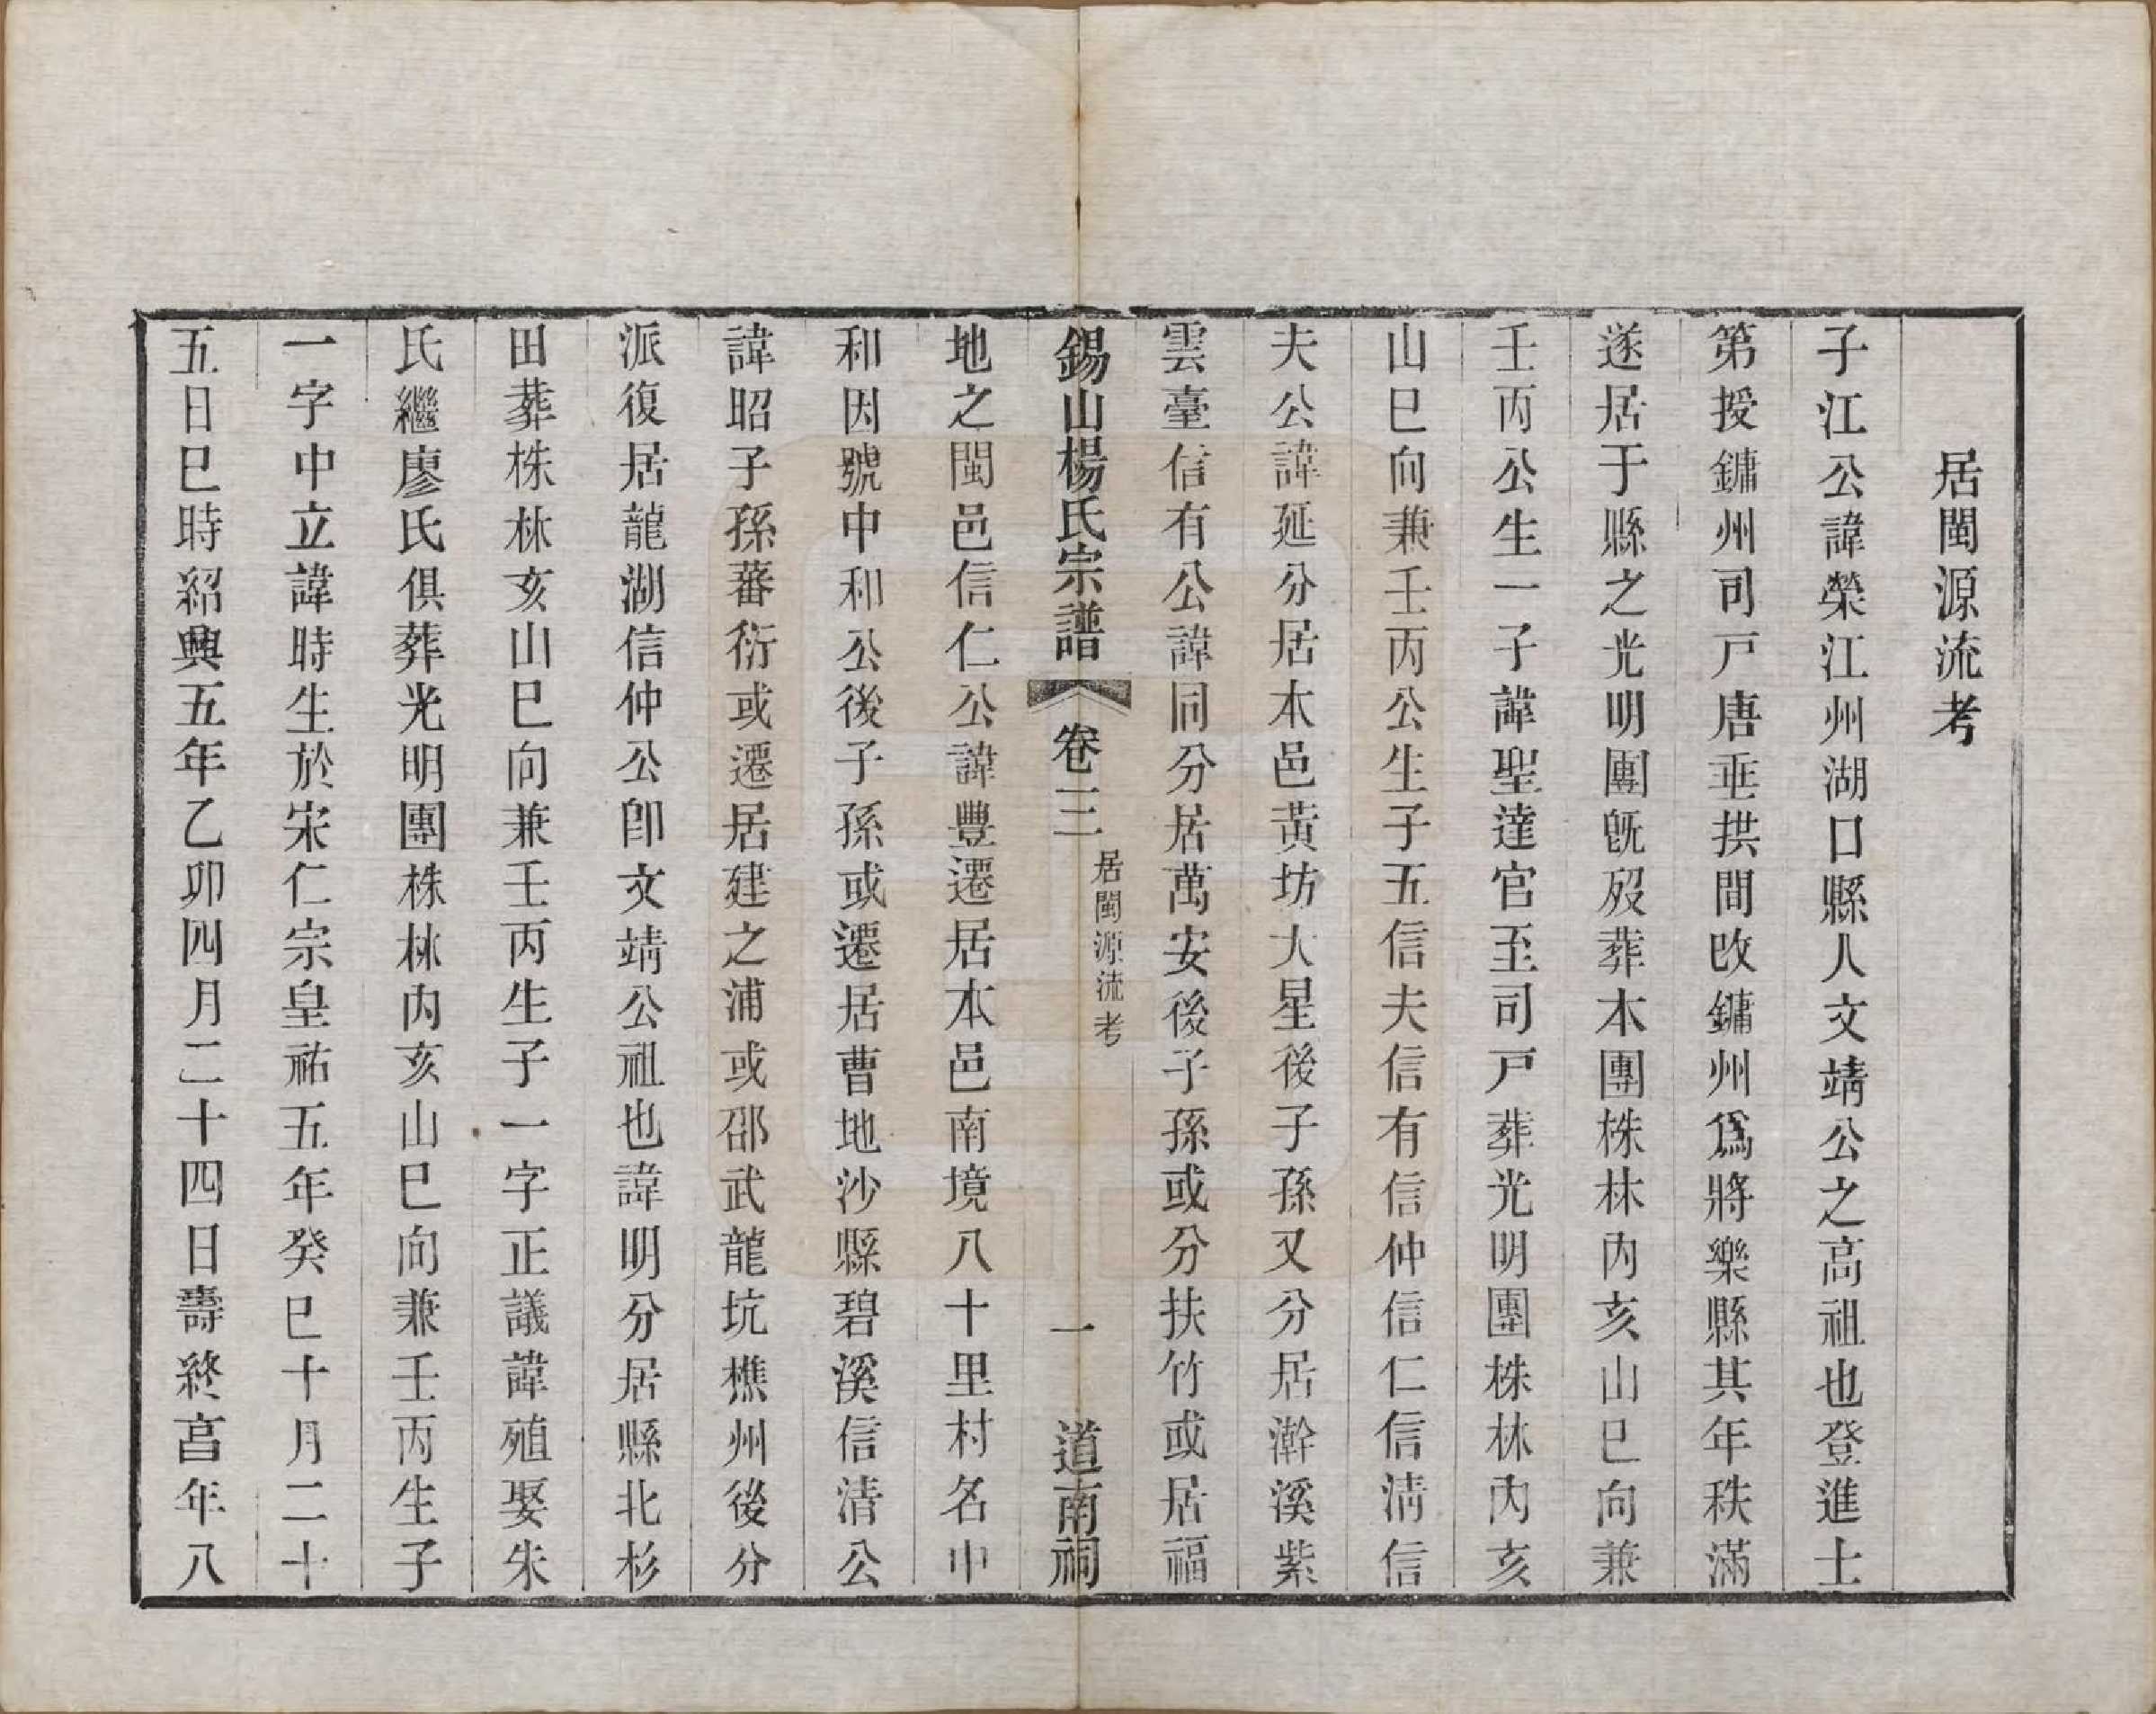 居閩源流考
子江公諱榮江州湖口縣人文靖公之高祖也登進士
第授鏞州司戸唐垂拱間改鏞州爲將樂縣其年秩滿
遂居于縣之光明團旣歿葬本團株林内亥山巳向兼
壬丙公生一子諱聖達官至司戸葬光明團株林内亥
山巳向兼壬丙公生子五信夫信有信仲信仁信清信
夫公諱延分居本邑黃坊大星後子孫又分居澣溪紫
雲臺信有公諱同分居萬安後子孫或分扶竹或居福
錫山楊氏宗譜 卷三 居閩源流考 一 道南祠
地之閩邑信仁公諱豐遷居本邑南境八十里村名中
和因號中和公後子孫或遷居曹地沙縣碧溪信清公
諱昭子孫蕃衍或遷居建之浦或邵武龍坑樵州後分
派復居龍湖信仲公卽文靖公祖也諱明分居縣北杉
田葬株林亥山巳向兼壬丙生子一字正議諱殖娶朱
氏繼廖氏俱葬光明團株林内亥山巳向兼壬丙生子
一字中立諱時生於宋仁宗皇祐五年癸巳十月二十
五日巳時紹興五年乙卯四月二十四日壽終亯年八